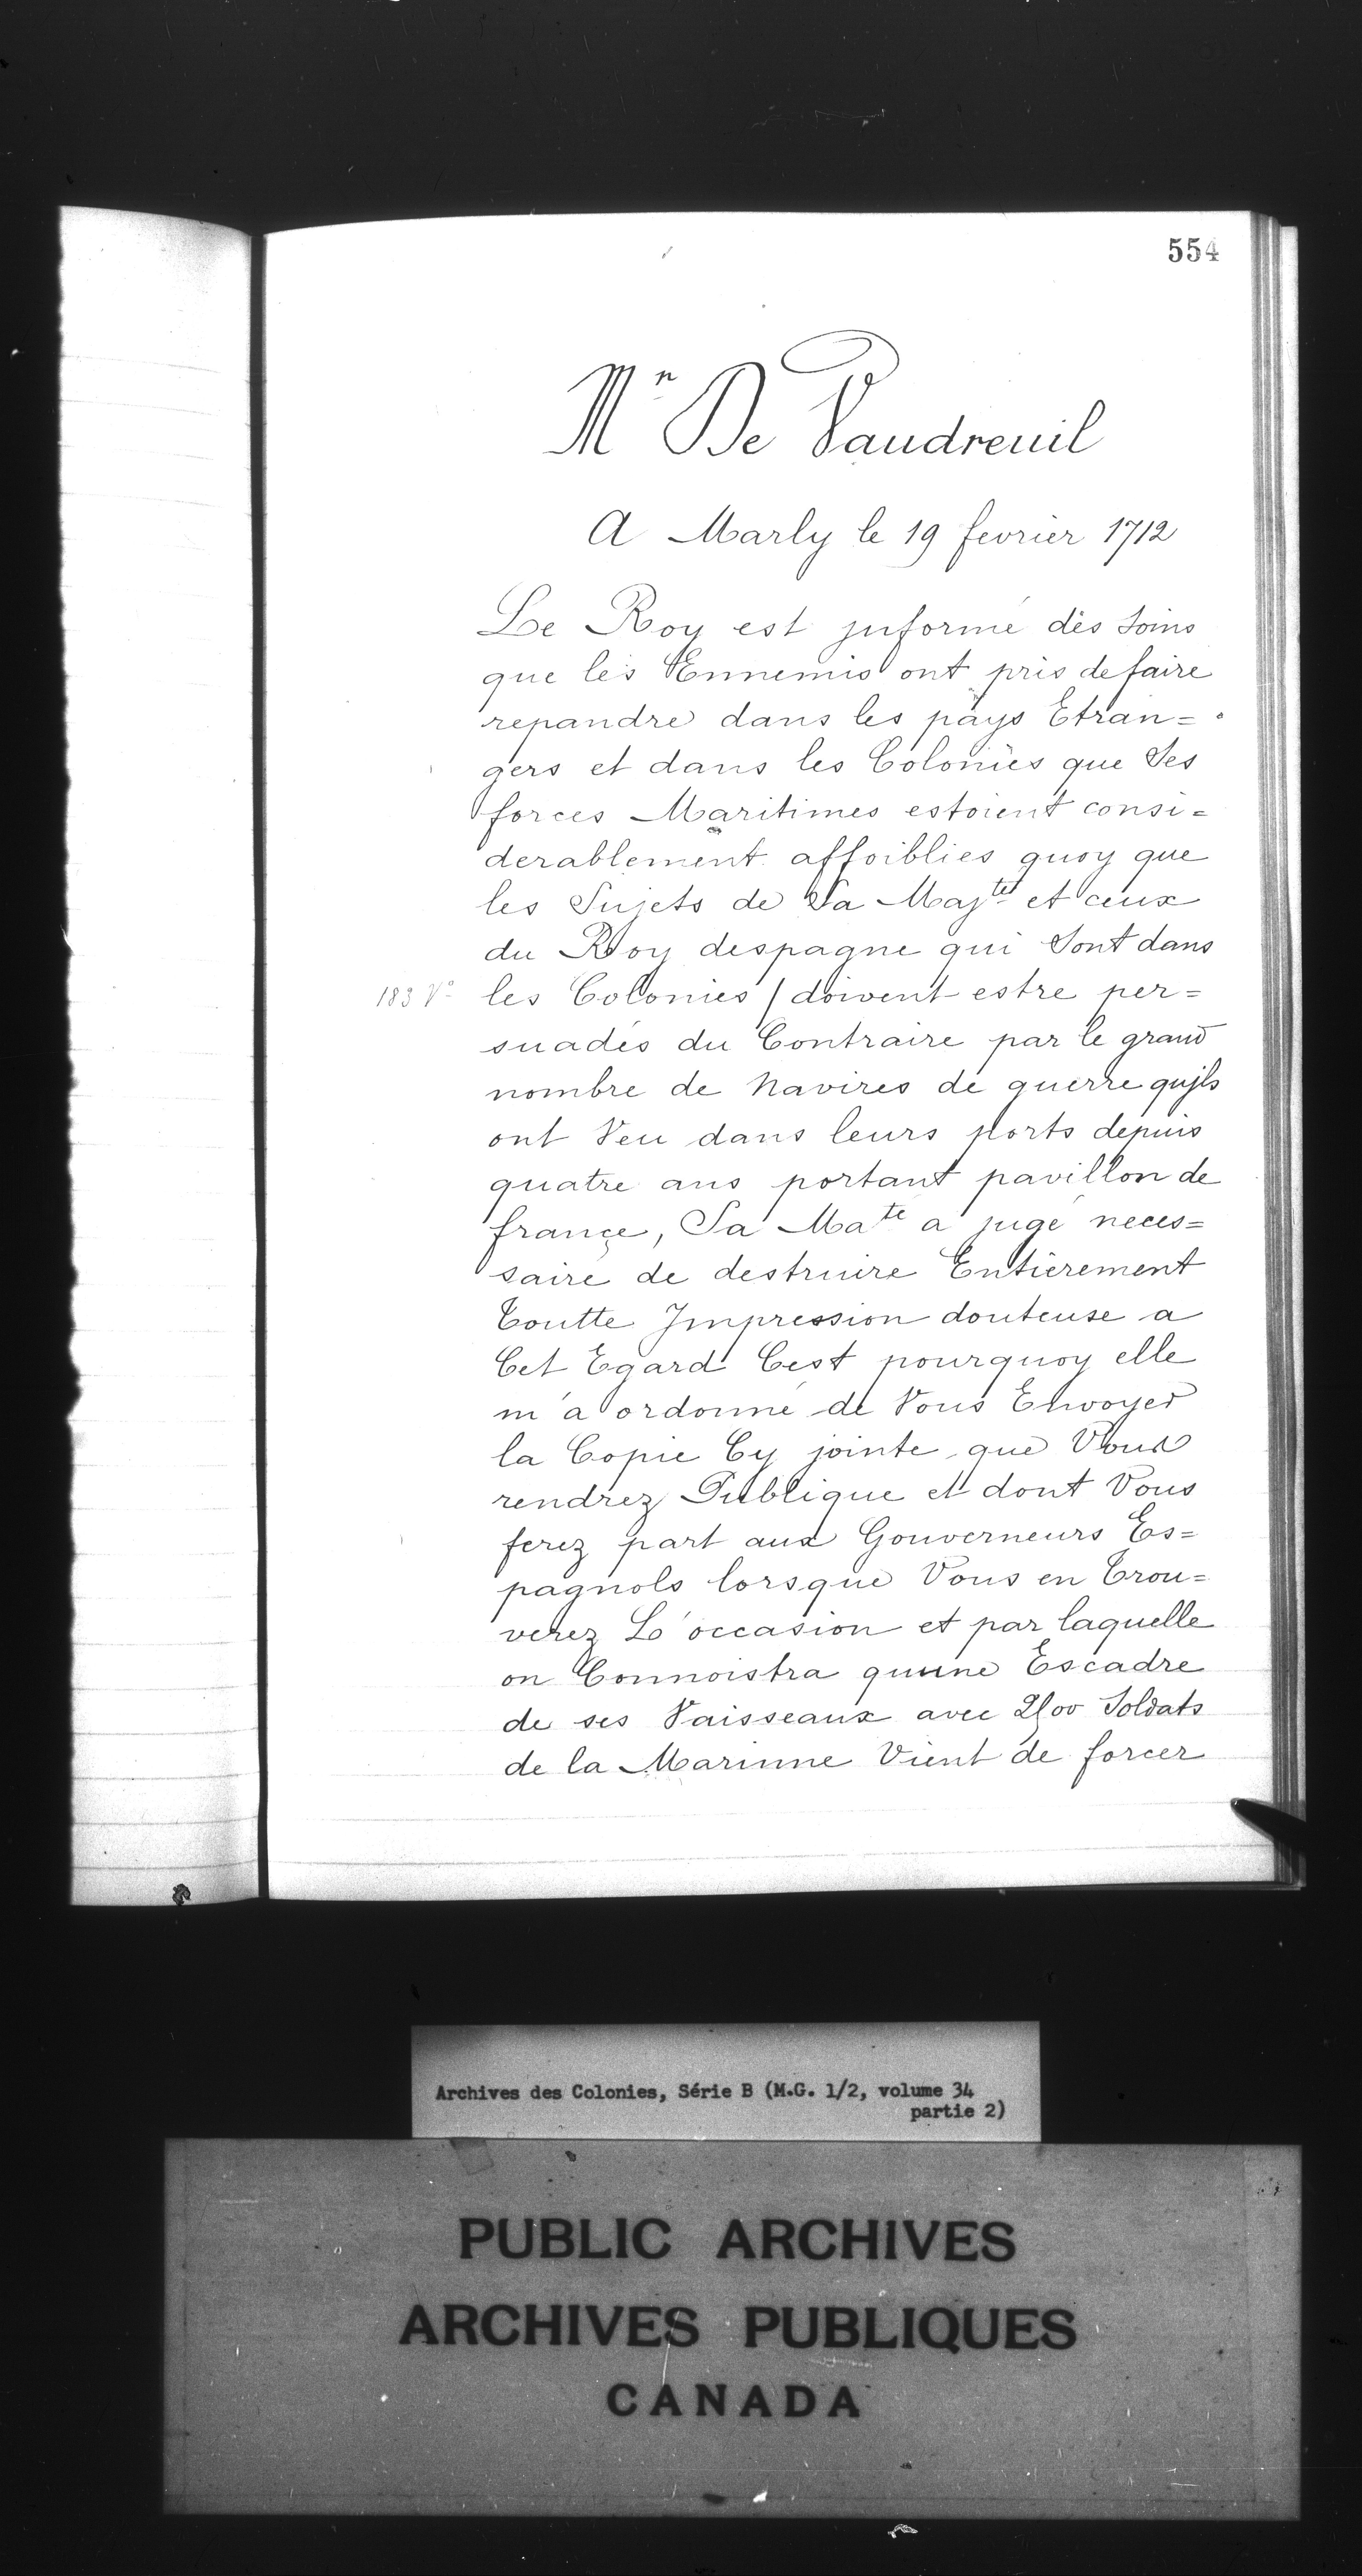 554
Mr De Vaudreuil
A Marly le 19 fevrier 1712
Le Roy est jnformé dés soins
que lés Ennemis ont pris de faire
repandre dans les pays Etran=
gers et dans les Colonies que Ses
forces Maritimes estoient consi=
derablement affoiblies quoy que
les Sujets de Sa Majte et ceux
du Roy despagne qui Sont dans
183 Vº les Colonies / doivent estre per=
suadés du Contraire par le grand
nombre de Navires de guerre qujls
ont Veu dans leurs ports depuis
quatre ans portant pavillon de
françe, Sa Mate a jugé neces=
saire de destruire Entièrement
Toutte Jmpression douteuse a
Cet Egard C'est pourquoy elle
m'a ordonné de Vous Envoyer
la Copie Cy jointe que Vous
rendrez Publique et dont Vous
ferez part aux Gouverneurs Es=
pagnols lorsque Vous en Trou=
verez L'occasion et par laquelle
on Connoistra quune Escadre
de ses Vaisseaux avec 2500 Soldats
de la Marinne Vient de forcer
Archives des Colonies, Série B (M.G. 1/2, volume 34
partie 2)
PUBLIC ARCHIVES
ARCHIVES PUBLIQUES
CANADA